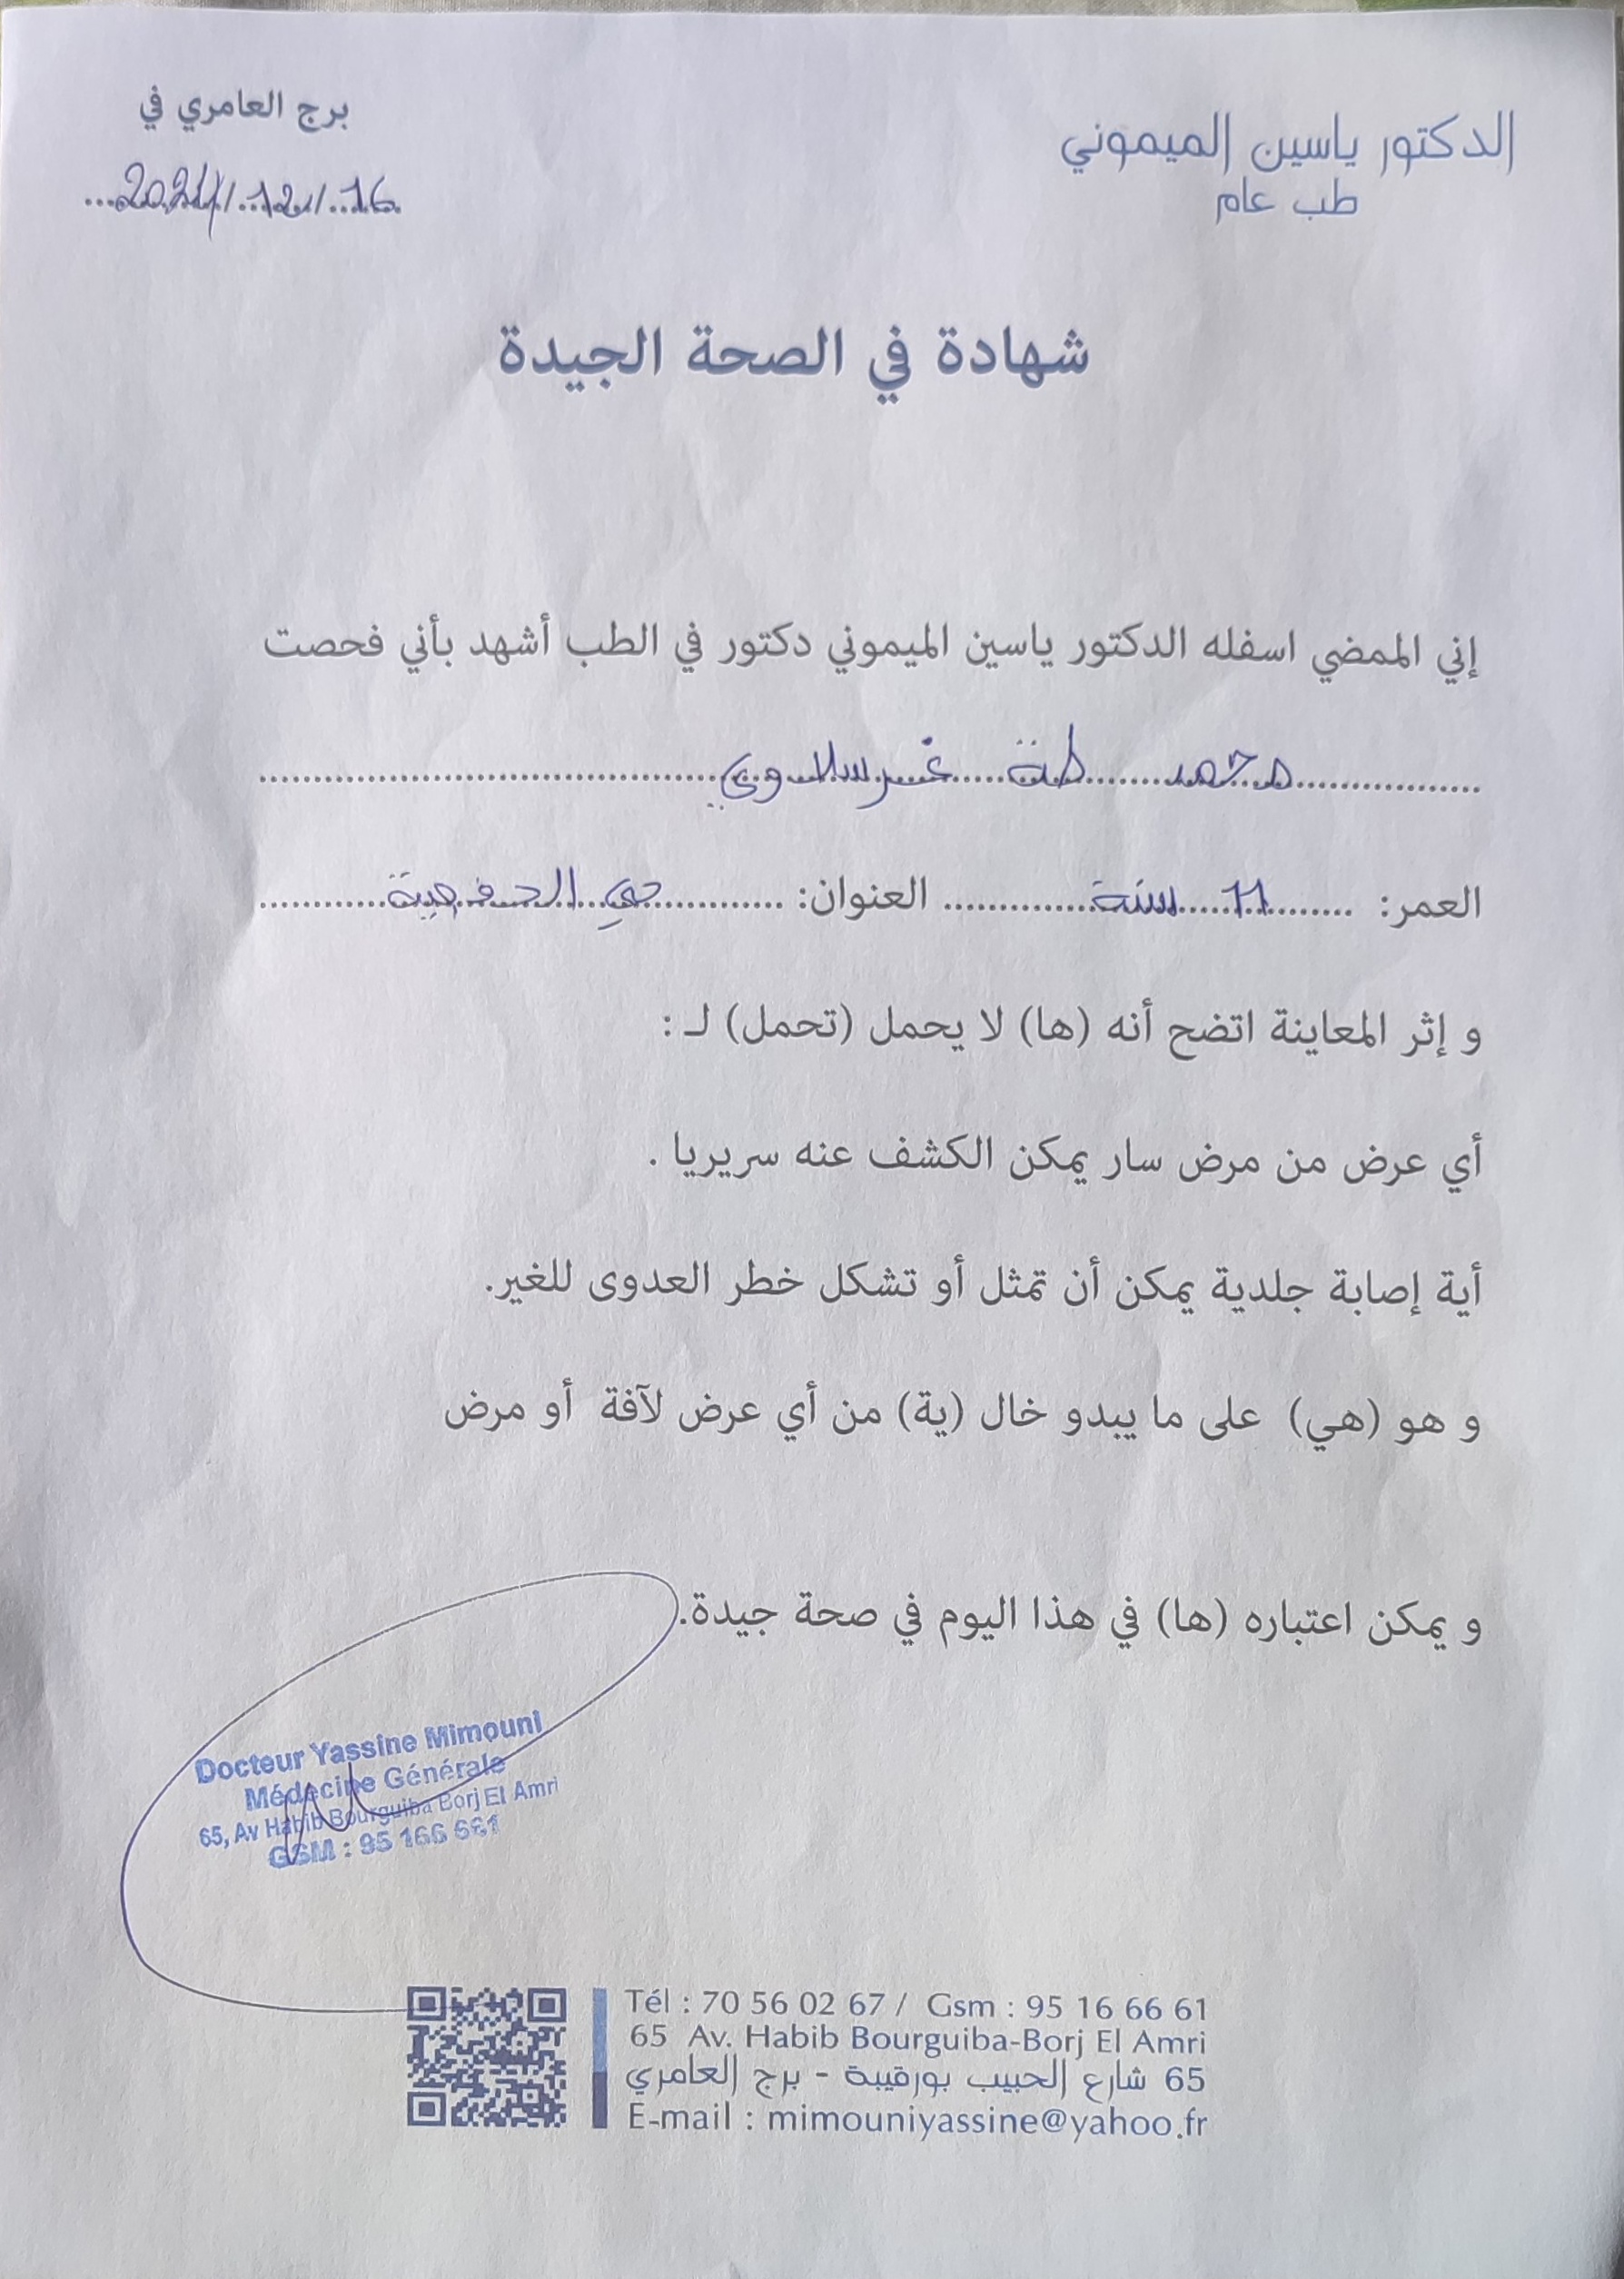 الدكتور ياسين الميموني
طب عام
برج العامري في
16/12/2024
شهادة في الصحة الجيدة
إني الممضي اسفله الدكتور ياسين الميموني دكتور في الطب أشهد بأني فحصت
محمد طة غرسلاوي
العمر: 11 سنة العنوان: حي
و إثر المعاينة اتضح أنه (ها) لا يحمل (تحمل) لـ :
أي عرض من مرض سار يمكن الكشف عنه سريريا .
أية إصابة جلدية يمكن أن تمثل أو تشكل خطر العدوى للغير.
و هو (هي) على ما يبدو خال (ية) من أي عرض لآفة أو مرض
و يمكن اعتباره (ها) في هذا اليوم في صحة جيدة.
Docteur Yassine Mimouni
Médecine Générale
65, Av Habib Bourguiba Borj El Amri
GSM : 95 166 661
Tél : 70 56 02 67 / Gsm : 95 16 66 61
65 Av. Habib Bourguiba-Borj El Amri
65 شارع الحبيب بورقيبة - برج العامري
E-mail : mimouniyassine@yahoo.fr